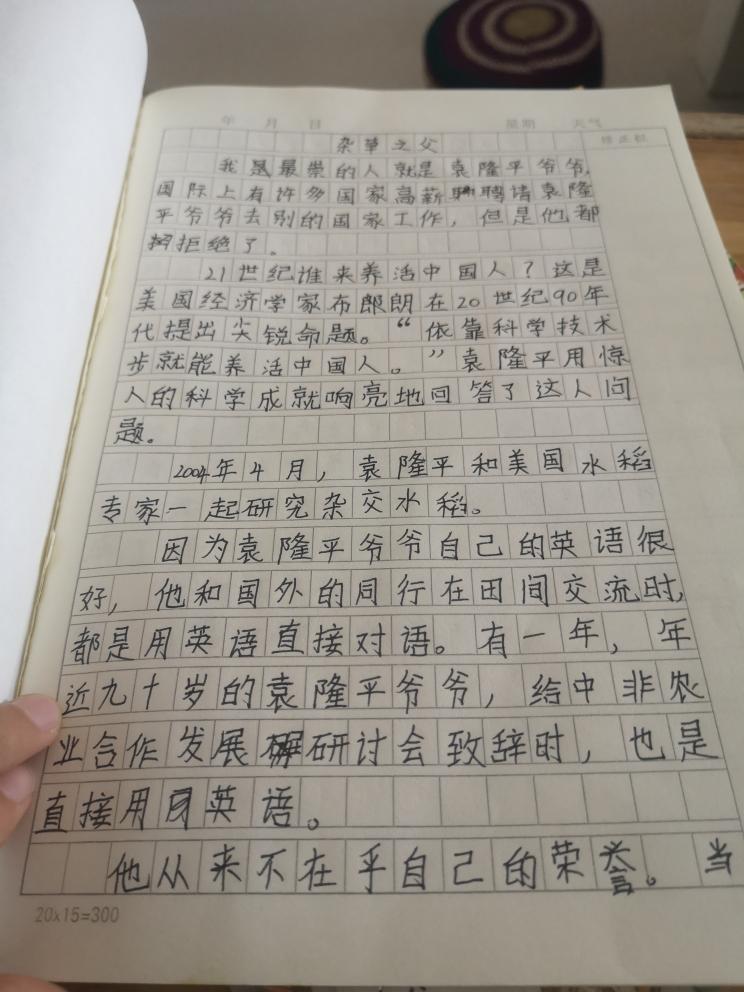 年 月 日 星期 天气
修正栏
杂草之父
我是最崇的人就是袁隆平爷爷,
国际上有许多国家高薪聘请袁隆
平爷爷去别的国家工作，但是他都
拒绝了。
21世纪谁来养活中国人？这是
美国经济学家布郎朗在20世纪90年
代提出尖锐命题。“依靠科学技术
步就能养活中国人。”袁隆平用惊
人的科学成就响亮地回答了这人问
题。
2004年4月，袁隆平和美国水稻
专家一起研究杂交水稻。
因为袁隆平爷爷自己的英语很
好，他和国外的同行在田间交流时,
都是用英语直接对话。有一年，年
近九十岁的袁隆平爷爷，给中非农
业合作发展研讨会致辞时，也是
直接用英语。
他从来不在乎自己的荣誉。当
20x15=300